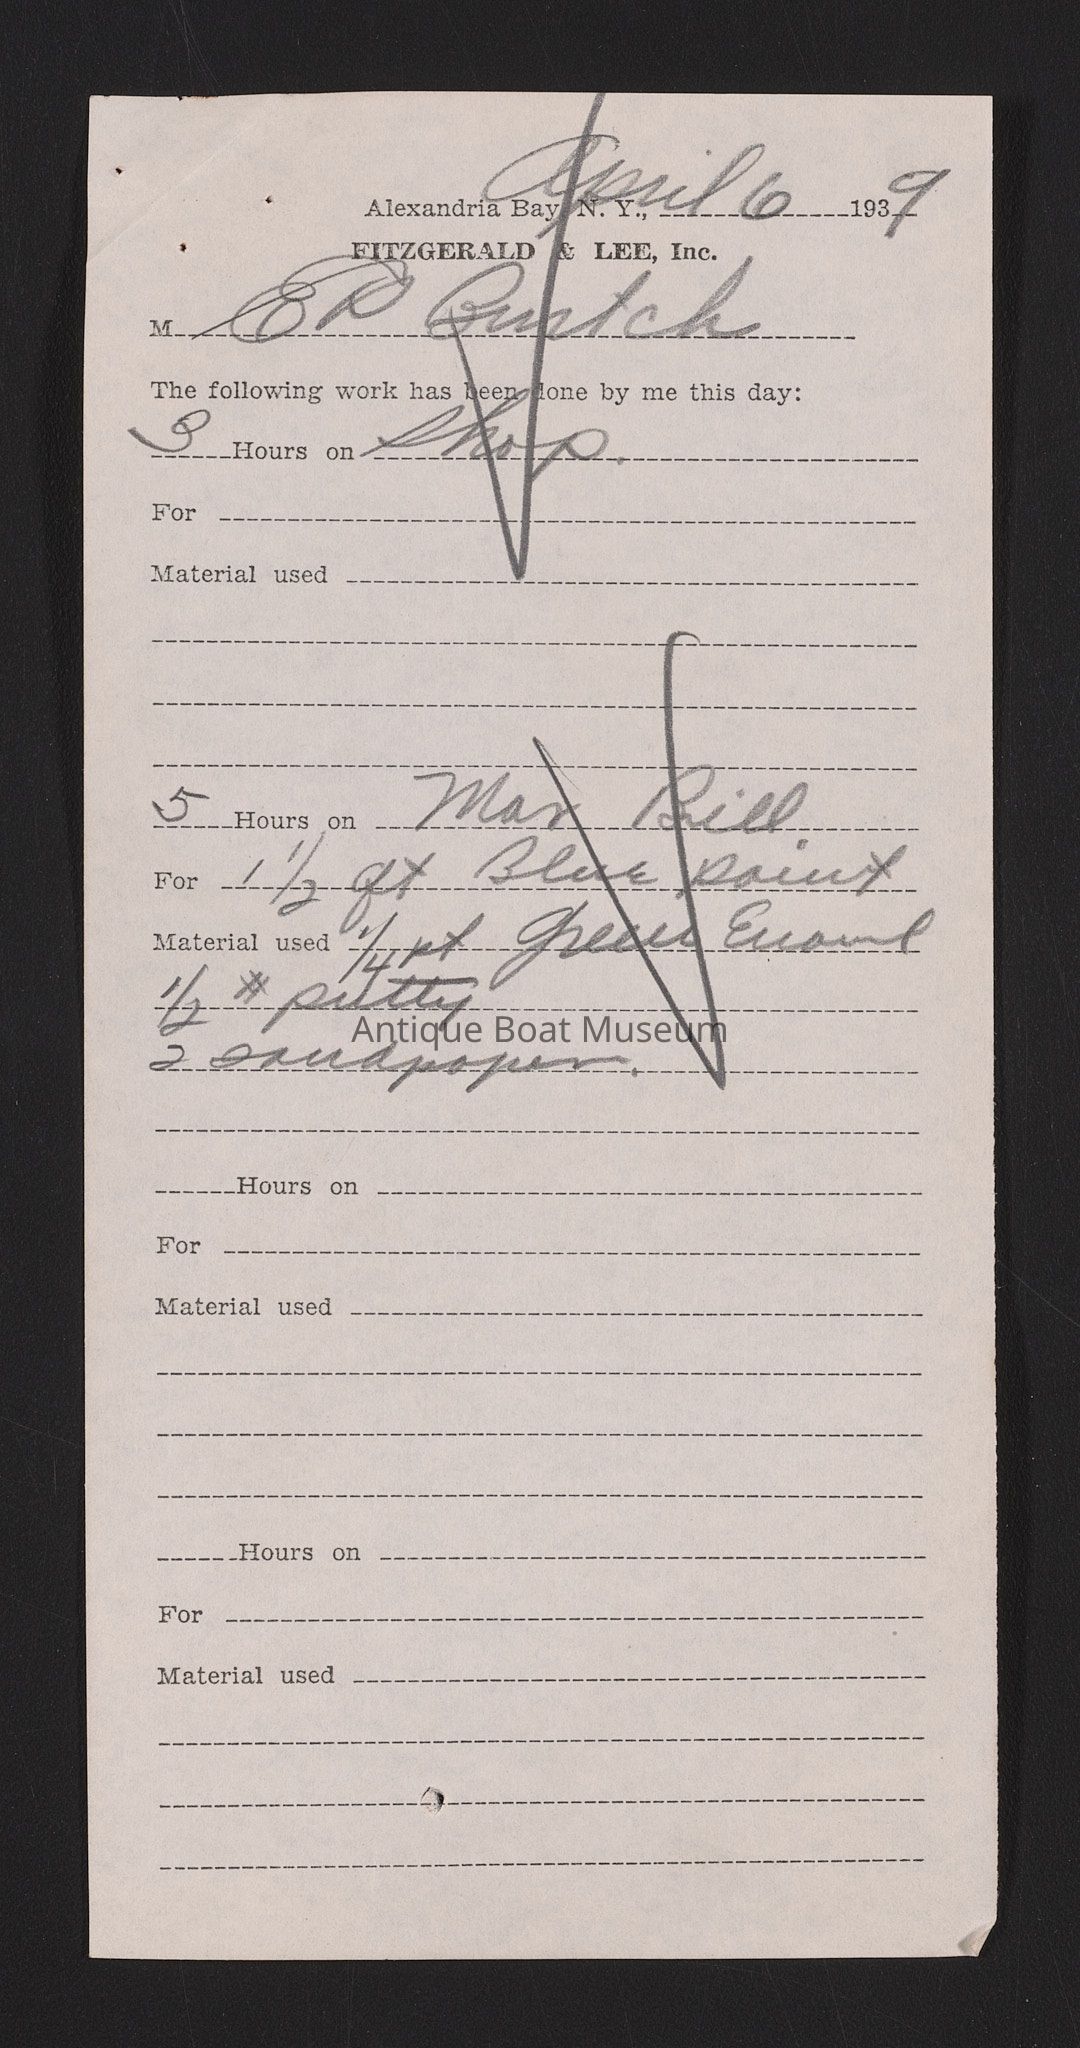 Alexandria Bay, N. Y., April 6 1939
FITZGERALD & LEE, Inc.
M Ed
The following work has been done by me this day:
3 Hours on Shop.
For
Material used
5 Hours on Mar Bill
For 1 1/2 qt Blue paint
Material used 1/4 pt Green Enamel
1/2 # putty
Antique Boat Museum
2 sandpaper.
Hours on
For
Material used
Hours on
For
Material used